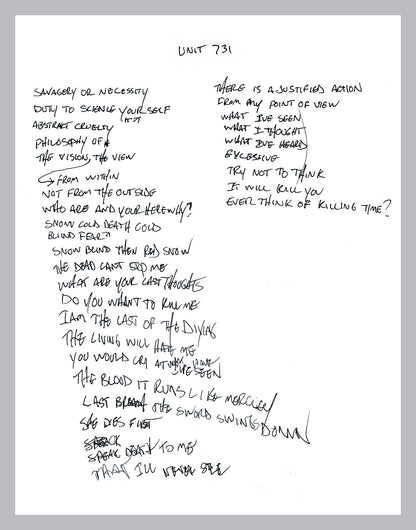 UNIT 731
SAVAGERY OR NECESSITY
DUTY TO SCIENCE YOURSELF
IT?
ABSTRACT CRUELTY
PHILOSOPHY OF
THE VISION, THE VIEW
→ FROM WITHIN
NOT FROM THE OUTSIDE
WHO ARE AND YOUR HERE WHY?
SNOW COLD DEATH COLD
BLIND FEAR
SNOW BLIND THEN RED SNOW
THE DEAD CANT STOP ME
WHAT ARE YOUR LAST THOUGHTS
DO YOU WHANT TO KILL ME
I AM THE LAST OF THE DIVINE
THE LIVING WILL HATE ME
YOU WOULD CRY AT WHAT
I'VE SEEN
THE BLOOD IT RUNS LIKE MERCURY
LAST BREATH THE SWORD SWINGS DOWN
SHE DIES FIRST
SPEAK
SPEAK DEATH TO ME
THAT I'LL NEVER SEE
THERE IS A JUSTIFIED ACTION
FROM ANY POINT OF VIEW
WHAT I'VE SEEN
WHAT I THOUGHT
WHAT I'VE HEARD
EXCESSIVE
TRY NOT TO THINK
IT WILL KILL YOU
EVER THINK OF KILLING TIME?